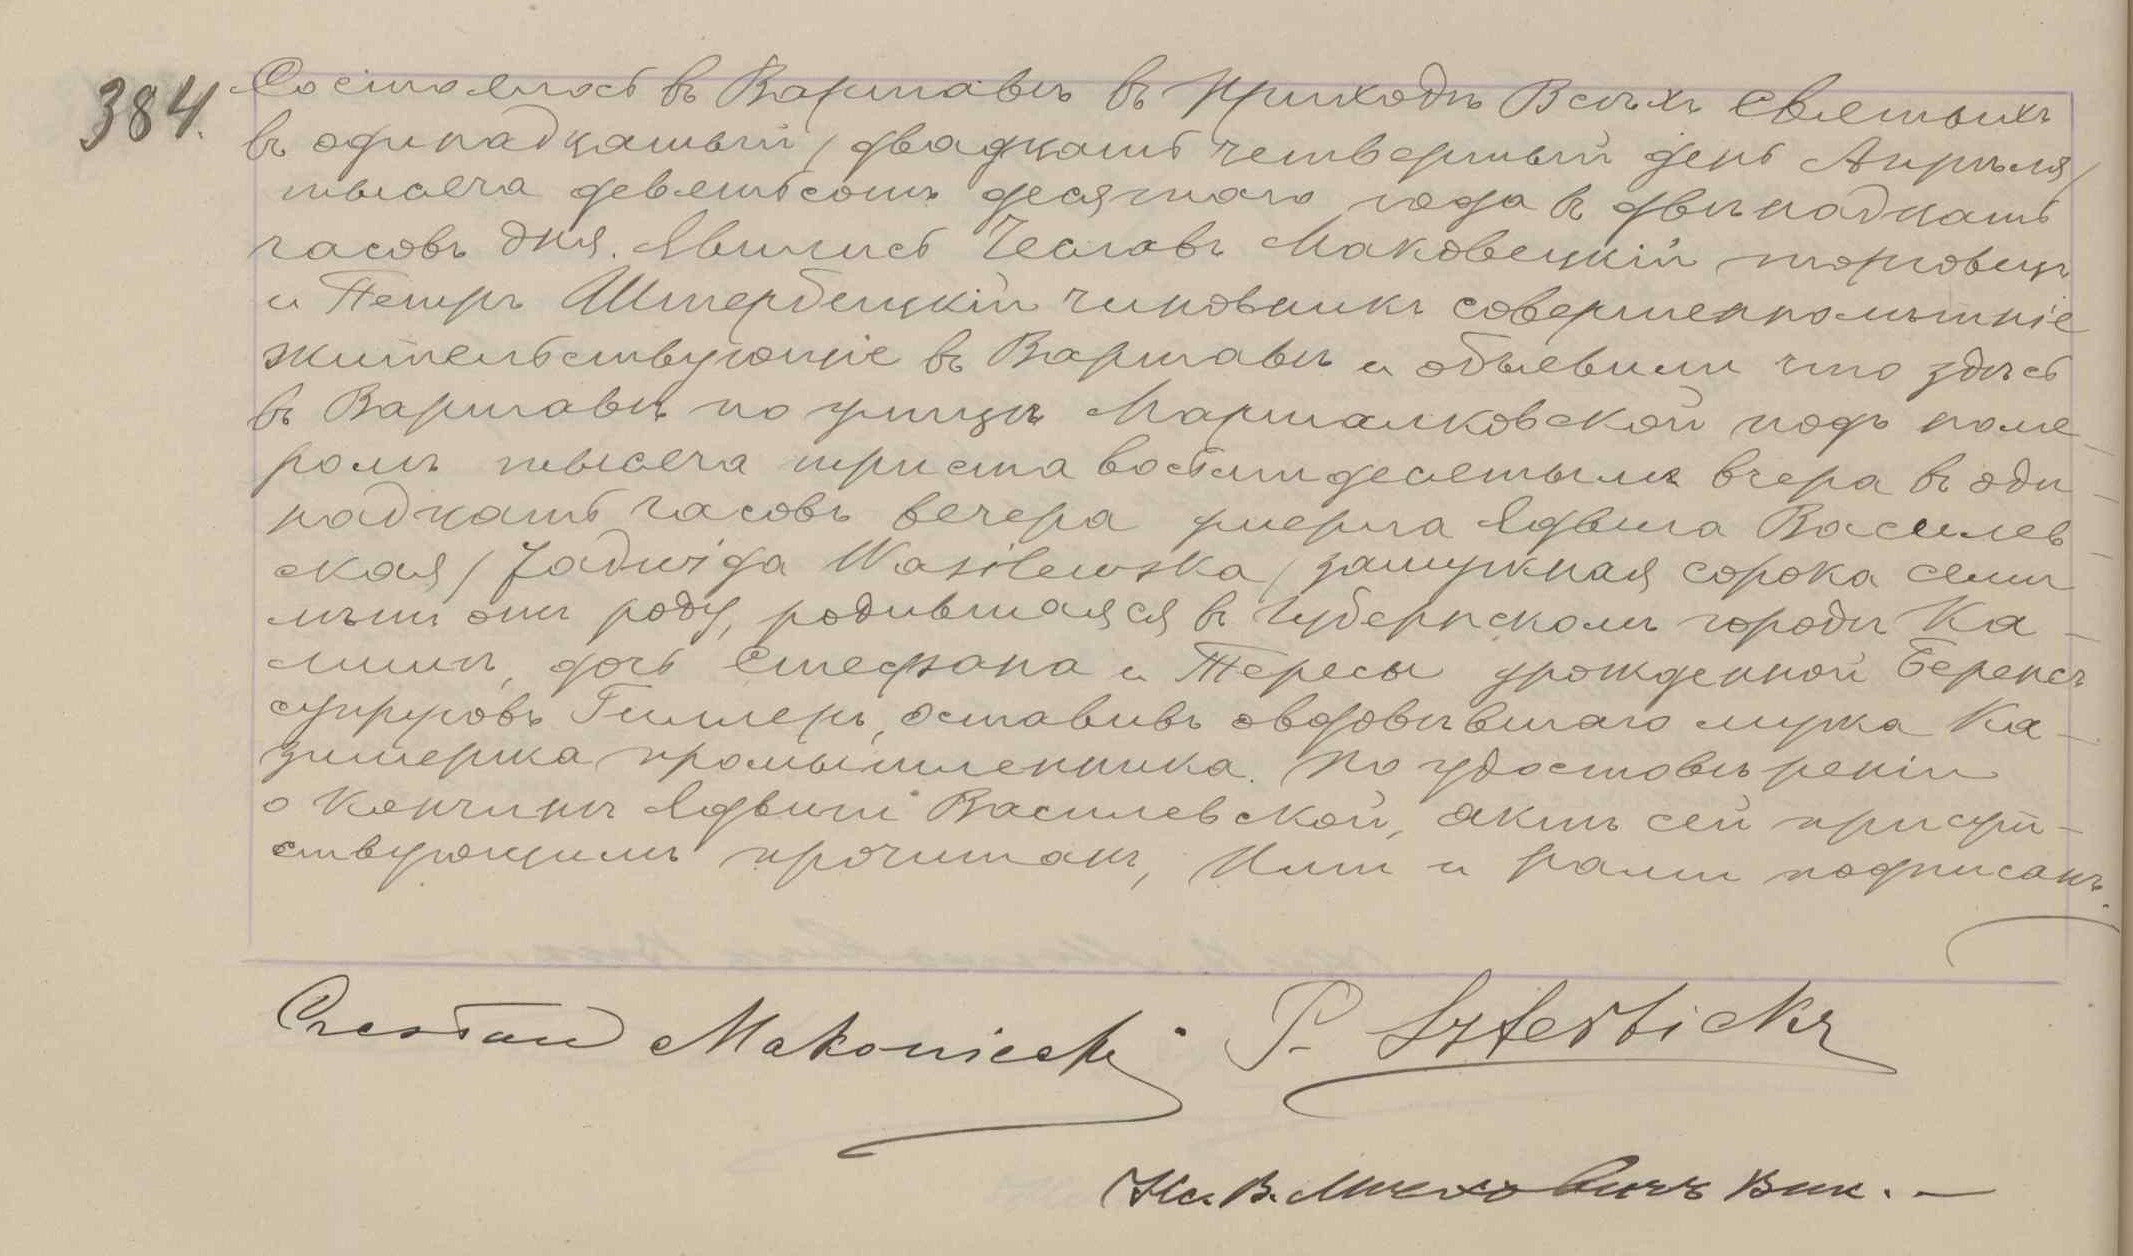 384. Состоялось въ Варшавѣ въ Приходѣ Всѣхъ Святыхъ
въ одинадцатый / двадцать четвертый день Апрѣля /
тысяча девятьсотъ десятаго года въ двѣнадцать
часовъ дня. Явились Чеславъ Маковецкій торговецъ
и Петръ Штербецкій чиновникъ совершеннолѣтніе
жительствующіе въ Варшавѣ и объявили что здѣсь
въ Варшавѣ по улицѣ Маршалковской подъ номе-
ромъ тысяча триста восьмидесятымъ вчера въ оди-
надцать часовъ вечера умерла Ядвига Василев-
ская / Jadwiga Wasilewska / замужная сорока семи
лѣтъ отъ роду, родившаяся въ Губернскомъ городѣ Ка-
лишѣ, дочь Стефана и Тересы урожденной Беренсъ
супруговъ Гиллеръ, оставивъ овдовѣвшаго мужа Ка-
зимержа промышленника. По удостовѣреніи
о кончинѣ Ядвиги Василевской, актъ сей присут-
ствующимъ прочитанъ, Ими и Нами подписанъ.
Czesław Makowiecki P. Szterbicki
Кс. В. Вик. —